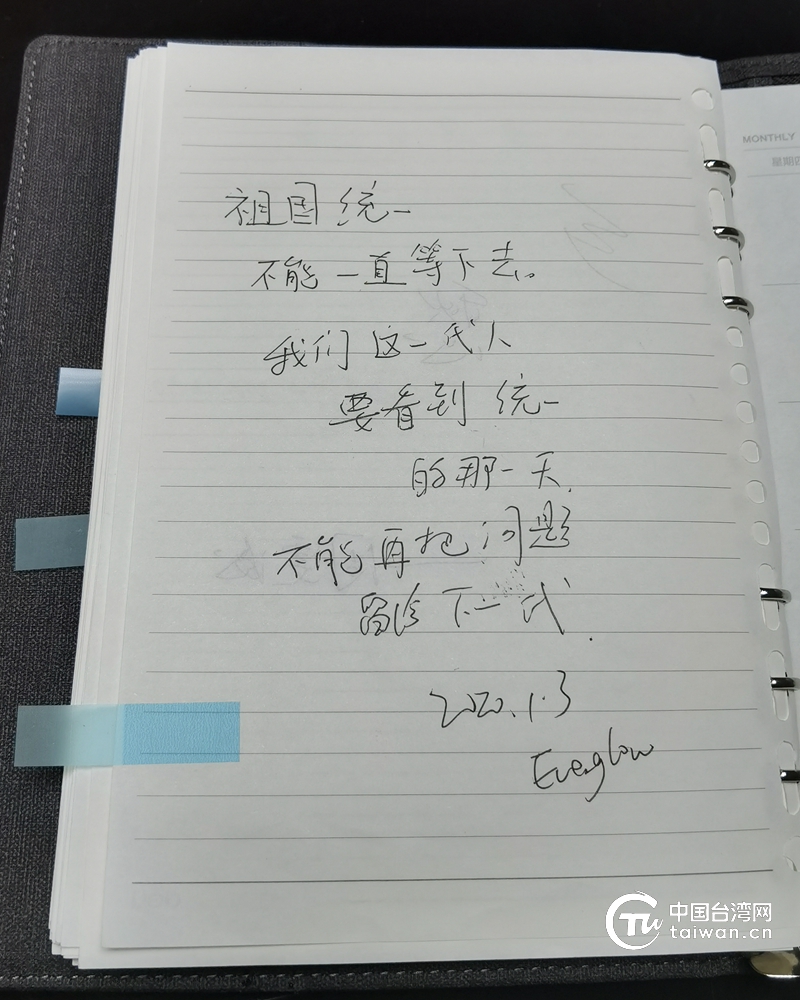 祖国统一
不能一直等下去。
我们这一代人
要看到统一
的那一天.
不能再把问题
留给下一代.
2020.1.3
Everglow
MONTHLY
星期四
中国台湾网
taiwan.cn